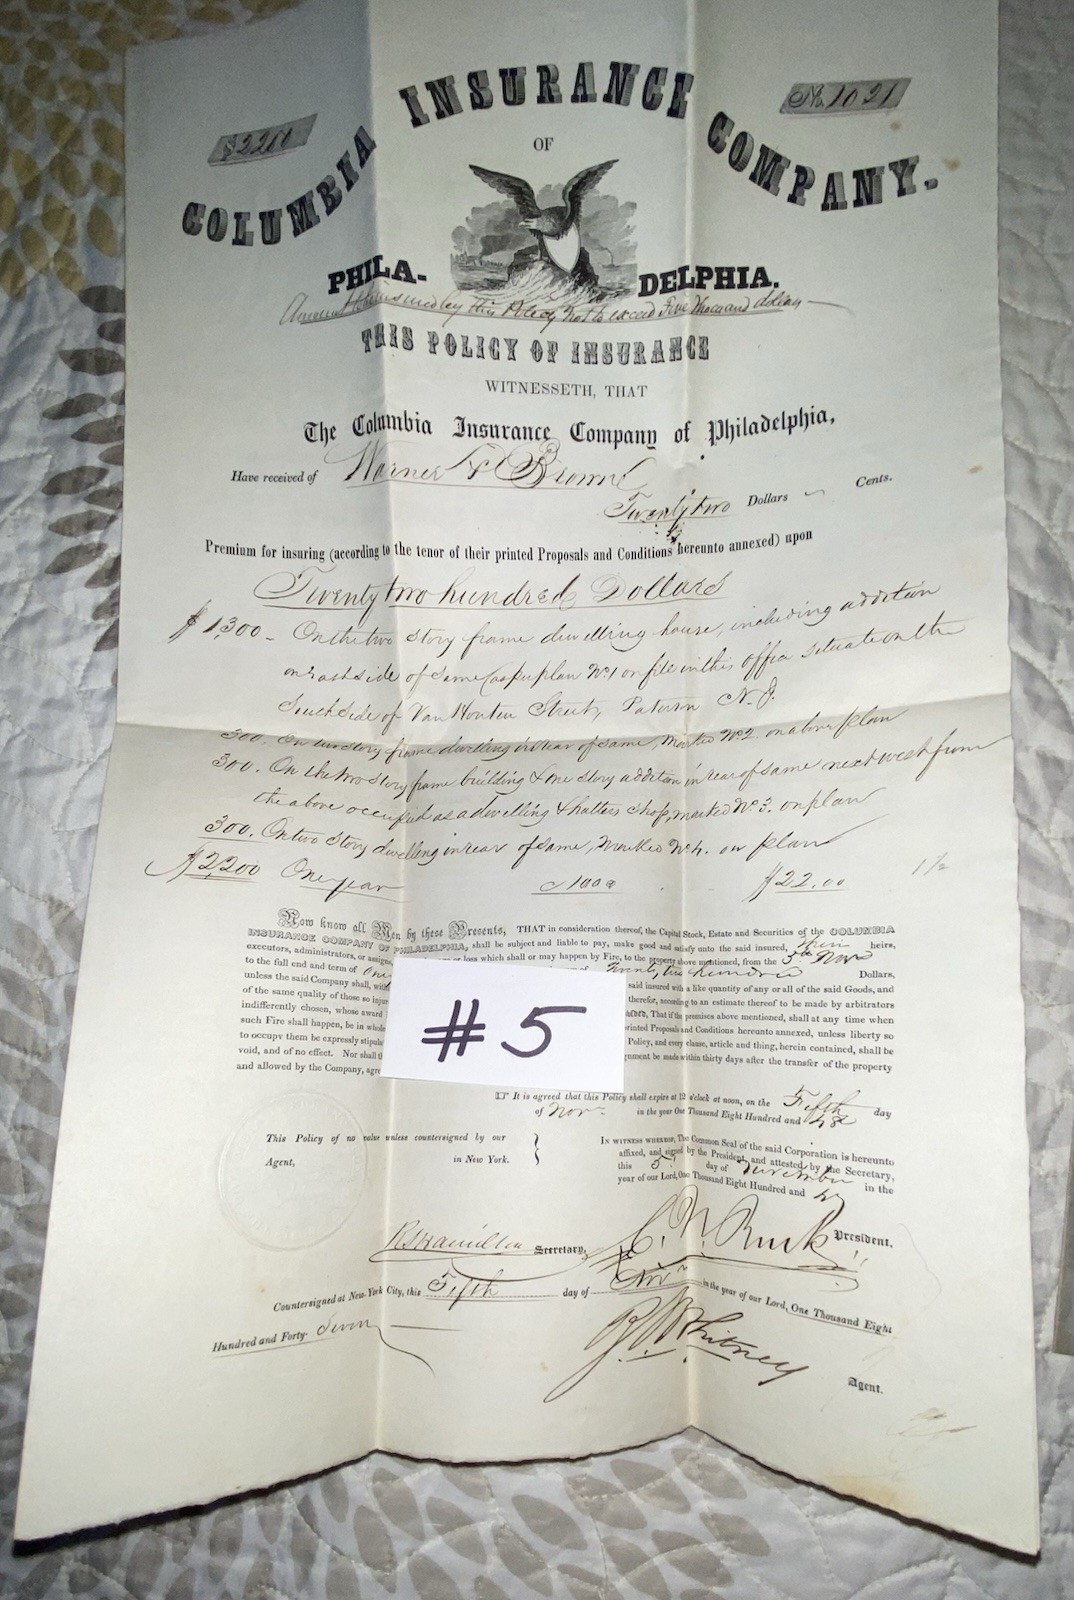 $2200
No. 1021
COLUMBIA INSURANCE COMPANY.
OF
PHILADELPHIA.
this Policy not to exceed Five Thousand dollars
THIS POLICY OF INSURANCE
WITNESSETH, THAT
The Columbia Insurance Company of Philadelphia,
Have received of Warner & Browne
Twenty two Dollars Cents.
Premium for insuring (according to the tenor of their printed Proposals and Conditions hereunto annexed) upon
Twenty two hundred Dollars
$1,300 - On the two story frame dwelling house, including addition
on East side of same (as per plan No. 1 on file in this office situate on the
South Side of Van Houten Street, Paterson N. J.
300. On two story frame dwelling in rear of same, marked No. 2 on above plan
300. On the two story frame building & one story addition in rear of same next west from
the above occupied as a dwelling & hatters shop, marked No. 3. on plan
300. On two story dwelling in rear of same, marked No. 4. on plan
$2,200 One year $22.00 1/2
Now know all Men by these Presents, THAT in consideration thereof, the Capital Stock, Estate and Securities of the COLUMBIA
INSURANCE COMPANY OF PHILADELPHIA, shall be subject and liable to pay, make good and satisfy unto the said insured, their heirs,
executors, administrators, or assigns, or loss which shall or may happen by Fire, to the property above mentioned, from the 5th Nov
to the full end and term of One Twenty two hundred Dollars,
unless the said Company shall, said insured with a like quantity of any or all of the said Goods, and
of the same quality of those so therefor, according to an estimate thereof to be made by arbitrators
indifferently chosen, whose award That if the premises above mentioned, shall at any time when
such Fire shall happen, be in whole printed Proposals and Conditions hereunto annexed, unless liberty so
to occupy them be expressly Policy, and every clause, article and thing, herein contained, shall be
void, and of no effect. Nor shall be made within thirty days after the transfer of the property
and allowed by the Company,
#5
☞ It is agreed that this Policy shall expire at 12 o'clock at noon, on the Fifth day
of Nov in the year One Thousand Eight Hundred and 48
This Policy of no value unless countersigned by our
Agent, in New York.
IN WITNESS WHEREOF, The Common Seal of the said Corporation is hereunto
affixed, and signed by the President, and attested by the Secretary,
this 5 day of November in the
year of our Lord, One Thousand Eight Hundred and 47
President.
Secretary,
Countersigned at New-York City, this Fifth day of Nov in the year of our Lord, One Thousand Eight
Hundred and Forty Seven
Whitney
Agent.